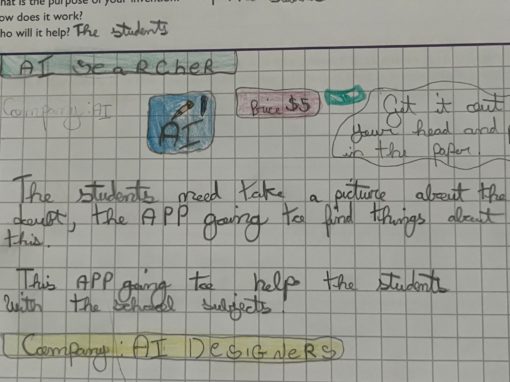 hat is the purpose of your invention?
ow does it work?
ho will it help? The students
AI SeARCHeR
Company: AI
AI
Price $5
Get it out
your head and
in the paper
The students need take a picture about the
doubt, the APP going too find things about
this.
This APP going too help the students
with the school subjects.
Company: AI DeSIGNeRS